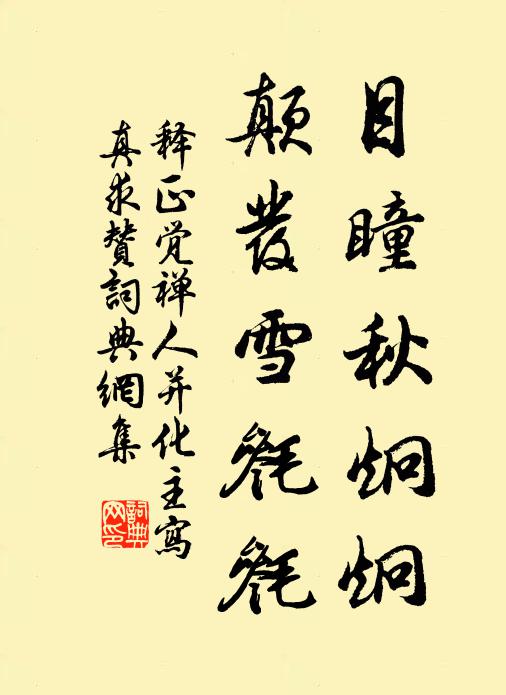 目瞳秋炯炯
颠发雪毿毿
释正觉禅人并化主写
真求赞词典网集
词典
网印